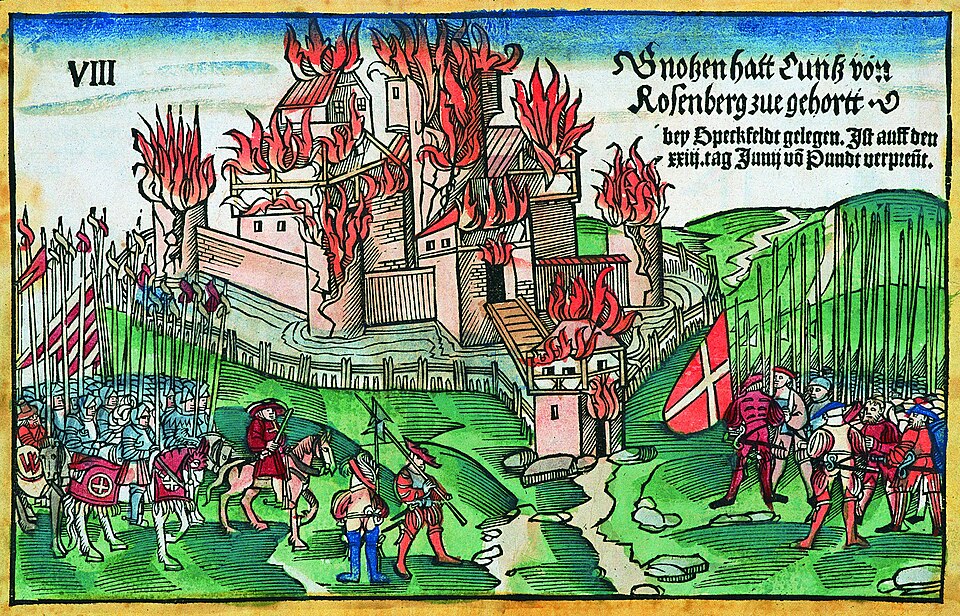 VIII
Gnotzen hatt Cuntz von
Rosenberg zue gehortt
bey Speckfeldt gelegen. Ist auff den
xxiij. tag Junij võ Pundt verpreñt.